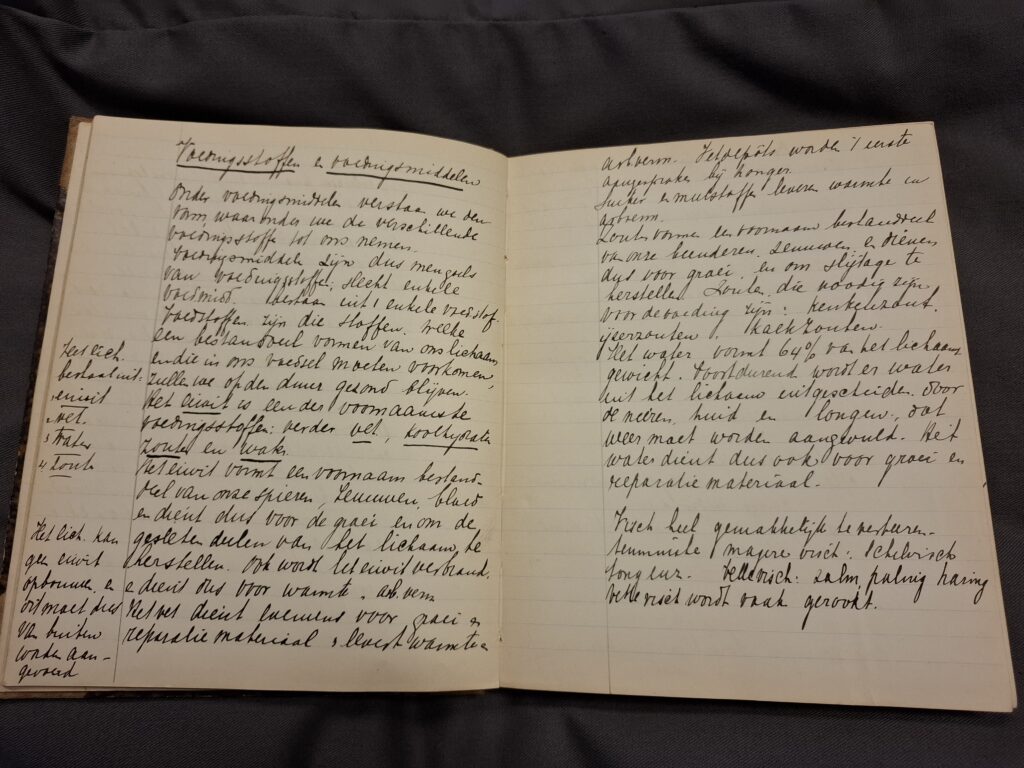 Voedingsstoffen en voedingsmiddelen
Onder voedingsmiddelen verstaan we den
vorm, waaronder we de verschillende
voedingsstoffen tot ons nemen.
Voedingsmiddelen zijn dus mengsels
van voedingsstoffen; slecht enkele
voedmidd. bestaan uit 1 enkele voedstof
Voedstoffen zijn die stoffen, welke
een bestanddeel vormen van ons lichaam,
en die in ons voedsel moeten voorkomen,
zullen we op den duur gezond blijven.
Het eiwit is een der voornaamste
voedingsstoffen: verder vet, koolhydraten
zouten en water.
Het eiwit vormt een voornaam bestand-
deel van onze spieren, zenuwen, bloed
en dient dus voor de groei en om de
gesleten deelen van het lichaam te
herstellen. Ook wordt het eiwit verbrand.
en dient dus voor warmte. arb. verm
Het vet dient eveneens voor groei en
reparatie materiaal & levert warmte en
Het lich.
bestaat uit:
1 eiwit
2 vet.
3 Water
4 Zouten
Het lich. kan
geen eiwit
opbouwen, en
dit moet dus
van buiten
worden aan-
gevoerd
arbverm. Vetdepôts worden 't eerste
aangesproken bij honger.
Suiker en meelstoffen leveren warmte en
arbverm.
Zouten vormen een voornaam bestanddeel
van onze beenderen, zenuwen, en dienen
dus voor groei, en om slijtage te
herstellen. Zouten, die noodig zijn
voor de voeding zijn: keukenzout.
ijzerzouten, kalkzouten.
Het water vormt 64% van het lichaams
gewicht. Voortdurend wordt er water
uit het lichaam uitgescheiden door
de nieren, huid en longen, dat
weer moet worden aangevuld. Het
water dient dus ook voor groei en
reparatie materiaal.
Visch heel gemakkelijk te verteeren.
tenminste magere visch: Schelvisch
tong enz. Vette visch: zalm, paling haring
vette visch wordt vaak gerookt.